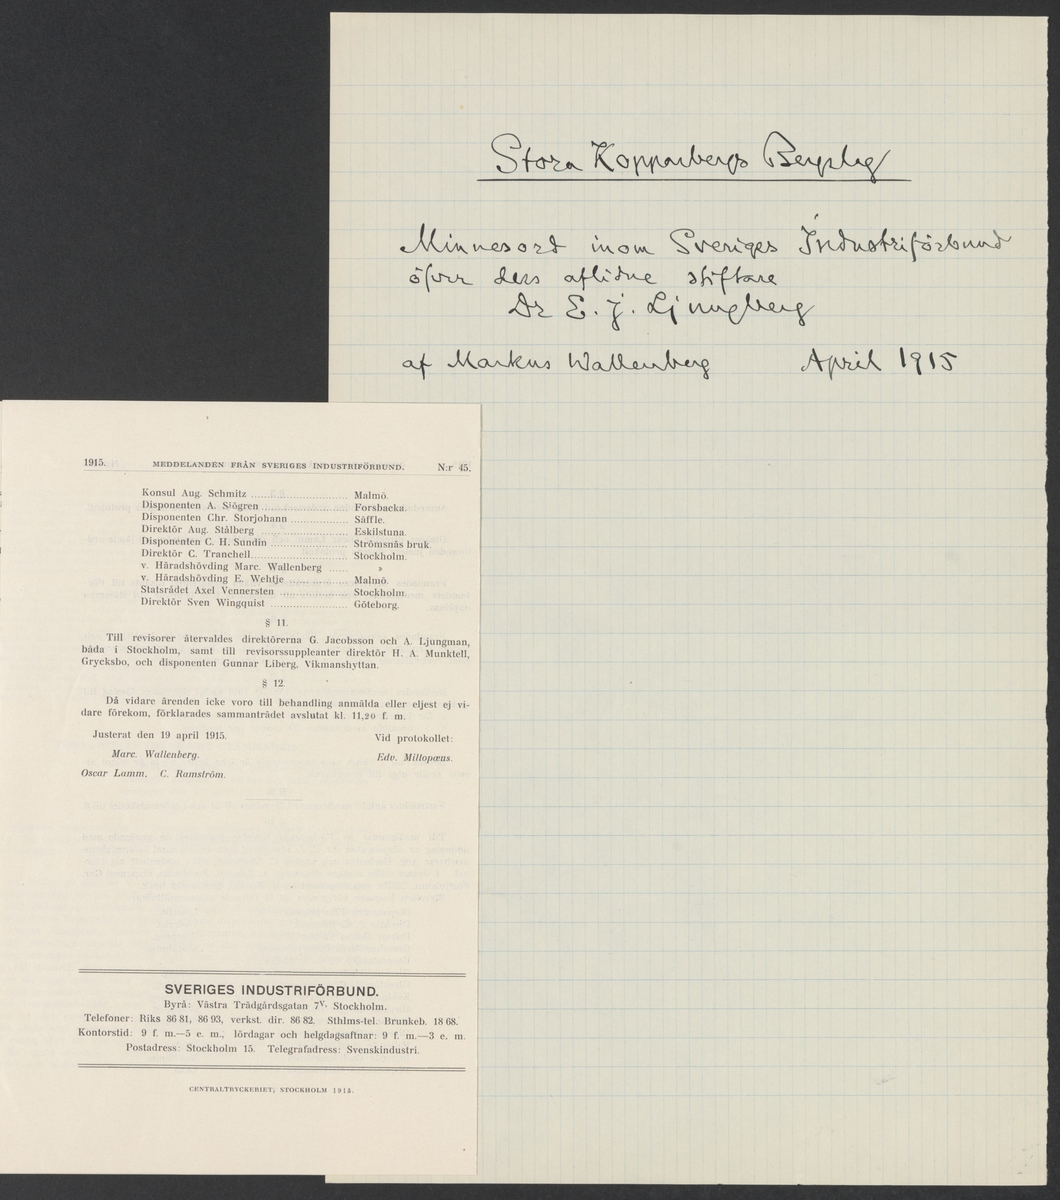 Stora Kopparbergs Bergslag
Minnesord inom Sveriges Industriförbund
öfver dess aflidne stiftare
Dr E. J. Ljungberg
af Markus Wallenberg April 1915
1915. MEDDELANDEN FRÅN SVERIGES INDUSTRIFÖRBUND. N:r 45.
Konsul Aug. Schmitz ........ Malmö.
Disponenten A. Sjögren ........ Forsbacka.
Disponenten Chr. Storjohann ........ Säffle.
Direktör Aug. Stålberg ........ Eskilstuna.
Disponenten C. H. Sundin ........ Strömsnäs bruk.
Direktör C. Tranchell ........ Stockholm.
v. Häradshövding Marc. Wallenberg ...... »
v. Häradshövding E. Wehtje ........ Malmö.
Statsrådet Axel Vennersten ........ Stockholm.
Direktör Sven Wingquist ........ Göteborg.
§ 11.
Till revisorer återvaldes direktörerna G. Jacobsson och A. Ljungman,
båda i Stockholm, samt till revisorssuppleanter direktör H. A. Munktell,
Grycksbo, och disponenten Gunnar Liberg, Vikmanshyttan.
§ 12.
Då vidare ärenden icke voro till behandling anmälda eller eljest ej vi-
dare förekom, förklarades sammanträdet avslutat kl. 11,20 f. m.
Justerat den 19 april 1915. Vid protokollet:
Marc. Wallenberg. Edv. Miltopæus.
Oscar Lamm. C. Ramström.
SVERIGES INDUSTRIFÖRBUND.
Byrå: Västra Trädgårdsgatan 7V. Stockholm.
Telefoner: Riks 86 81, 86 93, verkst. dir. 86 82. Sthlms-tel. Brunkeb. 18 68.
Kontorstid: 9 f. m.—5 e. m., lördagar och helgdagsaftnar: 9 f. m.—3 e. m.
Postadress: Stockholm 15. Telegrafadress: Svenskindustri.
CENTRALTRYCKERIET, STOCKHOLM 1915.